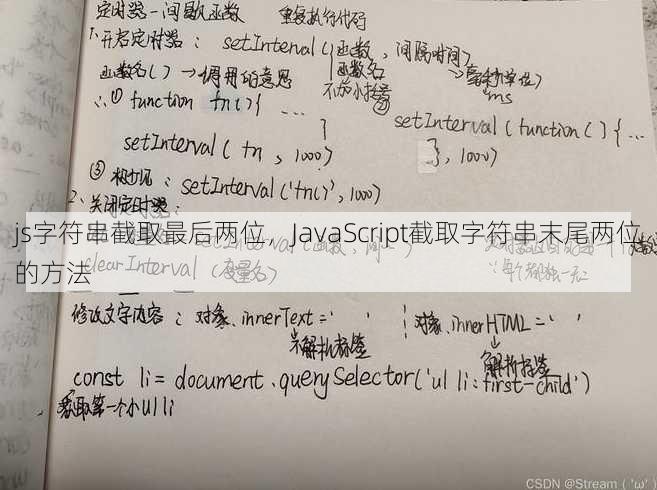 定时器-间歇函数  重复执行代码
1.开启定时器: setInterval(函数, 间隔时间)
函数名() →调用的意思  函数名  →毫秒单位)
不加小括号  ms
∴① function fn(){ ...
}
② setInterval(function(){ ...
setInterval(fn, 1000)  }, 1000)
③ : setInterval('fn()', 1000)
2、关闭定时器:
js字符串截取最后两位，JavaScript截取字符串末尾两位的方法
clearInterval (变量名)
修改文字内容: 对象.innerText=' '  对象.innerHTML=' '
不解析标签  解析标签
const li = document.querySelector('ul li:first-child')
获取第一个小ul li
CSDN @Stream ( 'ω' )